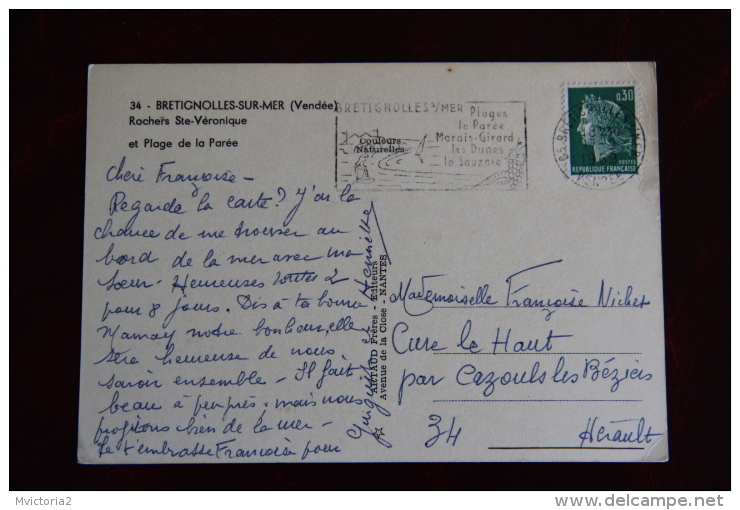 34 - BRETIGNOLLES-SUR-MER (Vendée)
Rochers Ste-Véronique
et Plage de la Parée
BRETIGNOLLES s/MER
Plages
la Parée
Marais-Girard
les Dunes
la Sauzaie
Couleurs
Naturelles
0,30
POSTES
REPUBLIQUE FRANÇAISE
Chère Françoise -
Regarde la carte? J'ai la
chance de me trouver au
bord de la mer avec ma
sœur - Heureuses toutes 2
pour 8 jours. Dis à ta bonne
Maman notre bonheur, elle
sera heureuse de nous
savoir ensemble - Il fait
beau à peu près, mais nous
profitons bien de la mer -
Je t'embrasse Françoise pour
et Henriette
ARTAUD Frères - Editeurs
Avenue de la Close - NANTES
Mademoiselle Françoise Nichet
Cure le Haut
par Cazouls les Béziers
34 Hérault
Mvictoria2